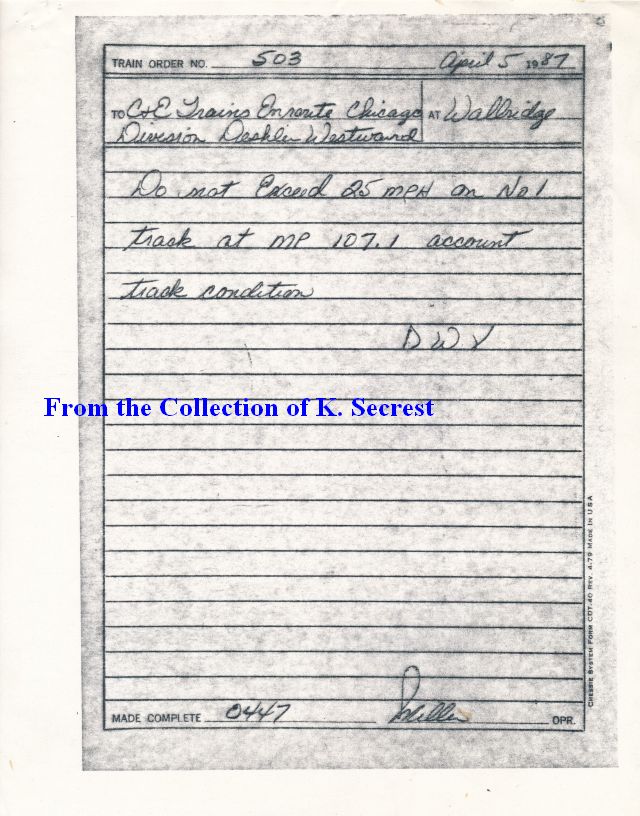 TRAIN ORDER NO. 503 April 5 1987
TO C&E Trains Enroute Chicago AT Walbridge
Division Deshler Westward
Do not Exceed 25 MPH on No 1
track at MP 107.1 account
track condition
DWV
From the Collection of K. Secrest
MADE COMPLETE 0447 OPR.
CHESSIE SYSTEM FORM CDT-40 REV. 4-79 MADE IN USA